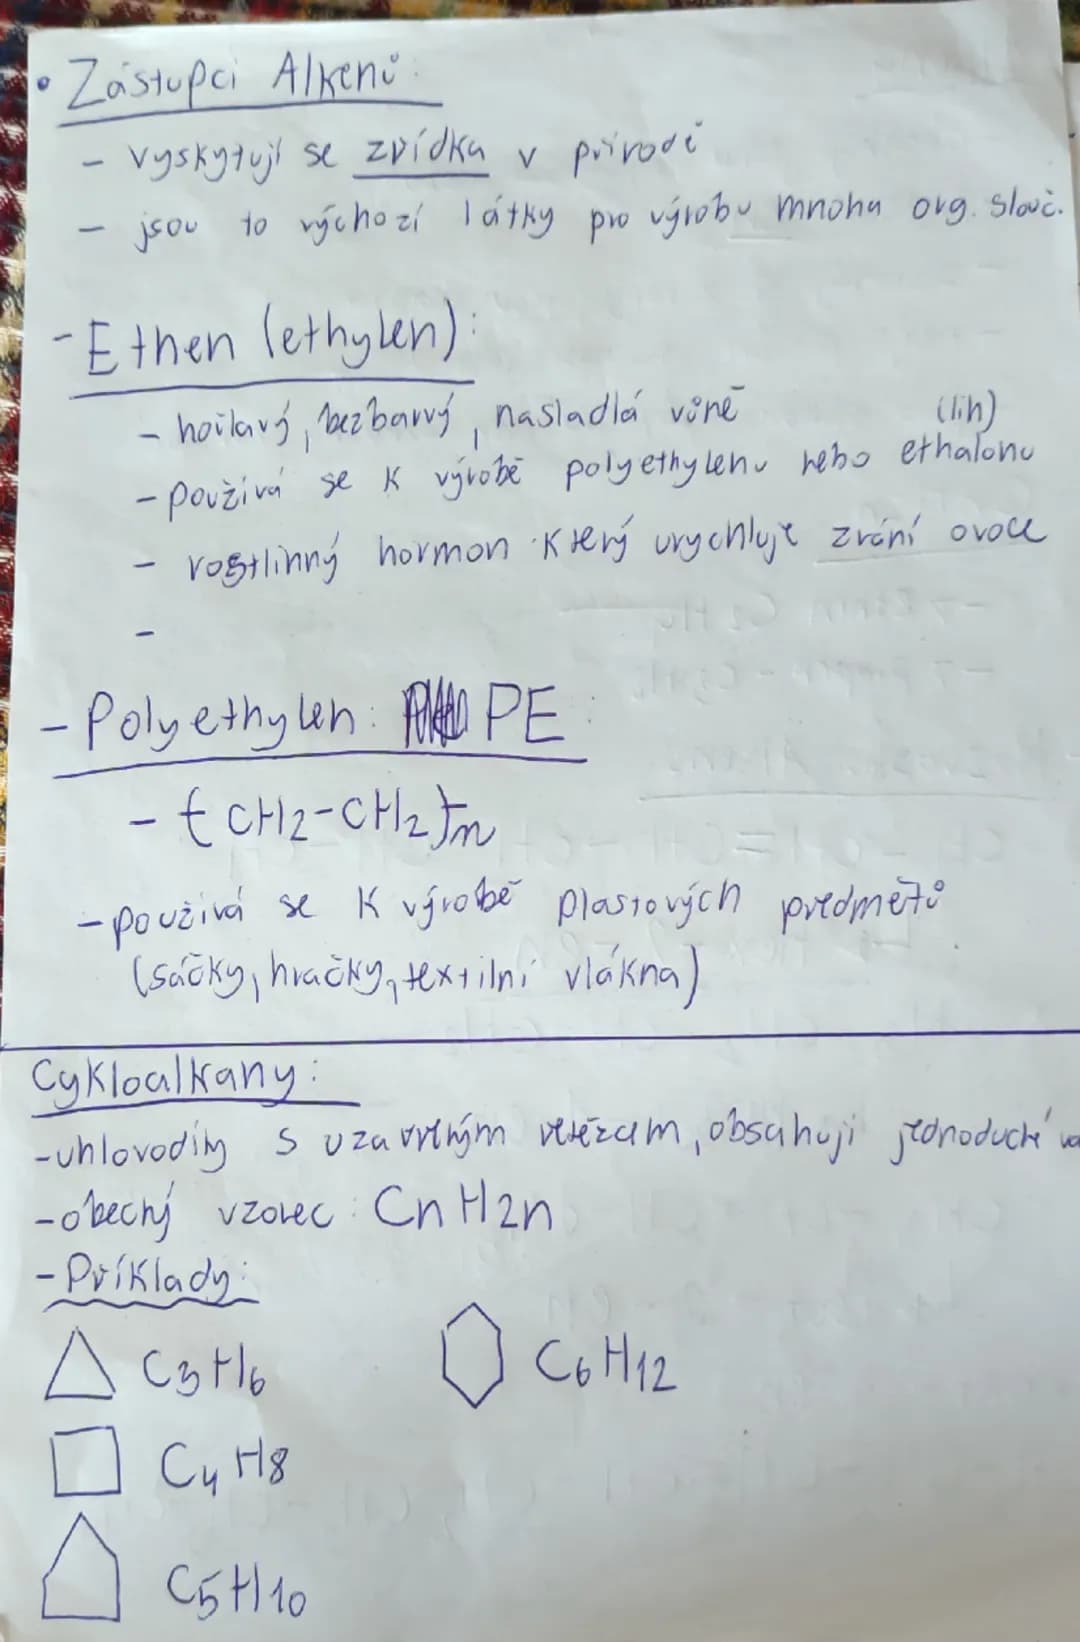 • Zástupci Alkenů:
- vyskytují se zřídka v přírodě
- jsou to výchozí látky pro výrobu mnoha org. slouč.
- Ethen (ethylen):
- hořlavý, bezbarvý, nasladlá vůně
(lih)
- používá se k výrobě polyethylenu nebo ethalonu
- rostlinný hormon který urychluje zrání ovoce
-
- Polyethylen: PE:
- {CH2-CH2}n
- používá se k výrobě plastových předmětů
(sáčky, hračky, textilní vlákna)
Cykloalkany:
- uhlovodíky s uzavřeným řetězcem, obsahují jednoduché va
- obecný vzorec: CnH2n
- Příklady:
C3H6 C6H12
C4H8
C5H10